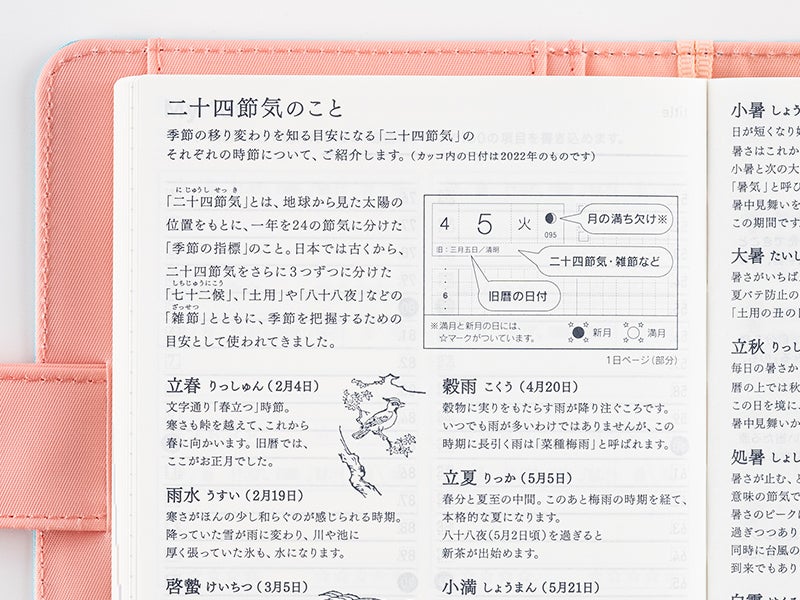 二十四節気のこと
季節の移り変わりを知る目安になる「二十四節気」の
それぞれの時節について、ご紹介します。(カッコ内の日付は2022年のものです)
にじゅうし せっ き
「二十四節気」とは、地球から見た太陽の
位置をもとに、一年を24の節気に分けた
「季節の指標」のこと。日本では古くから、
二十四節気をさらに3つずつに分けた
しちじゅうにこう
「七十二候」、「土用」や「八十八夜」などの
ざっせつ
「雑節」とともに、季節を把握するための
目安として使われてきました。
4 5 火
095
月の満ち欠け※
旧:三月五日/清明
二十四節気・雑節など
6
旧暦の日付
※満月と新月の日には、
☆マークがついています。
新月
満月
1日ページ(部分)
立春 りっしゅん(2月4日)
文字通り「春立つ」時節。
寒さも峠を越えて、これから
春に向かいます。旧暦では、
ここがお正月でした。
雨水 うすい(2月19日)
寒さがほんの少し和らぐのが感じられる時期。
降っていた雪が雨に変わり、川や池に
厚く張っていた氷も、水になります。
啓蟄 けいちつ(3月5日)
穀雨 こくう(4月20日)
穀物に実りをもたらす雨が降り注ぐころです。
いつでも雨が多いわけではありませんが、この
時期に長引く雨は「菜種梅雨」と呼ばれます。
立夏 りっか(5月5日)
春分と夏至の中間。このあと梅雨の時期を経て、
本格的な夏になります。
八十八夜(5月2日頃)を過ぎると
新茶が出始めます。
小満 しょうまん(5月21日)
小暑 しょう
日が短くなり始
暑さはこれか
小暑と次の大
「暑気」と呼び
暑中見舞いを
この期間です
大暑 たいし
暑さがいちば
夏バテ防止の
「土用の丑の日
立秋 りっし
毎日の暑さか
暦の上では秋
この日を境に
暑中見舞いか
処暑 しょし
暑さが止む、と
意味の節気で
暑さのピークは
過ぎつつあり
同時に台風の
到来でもあり